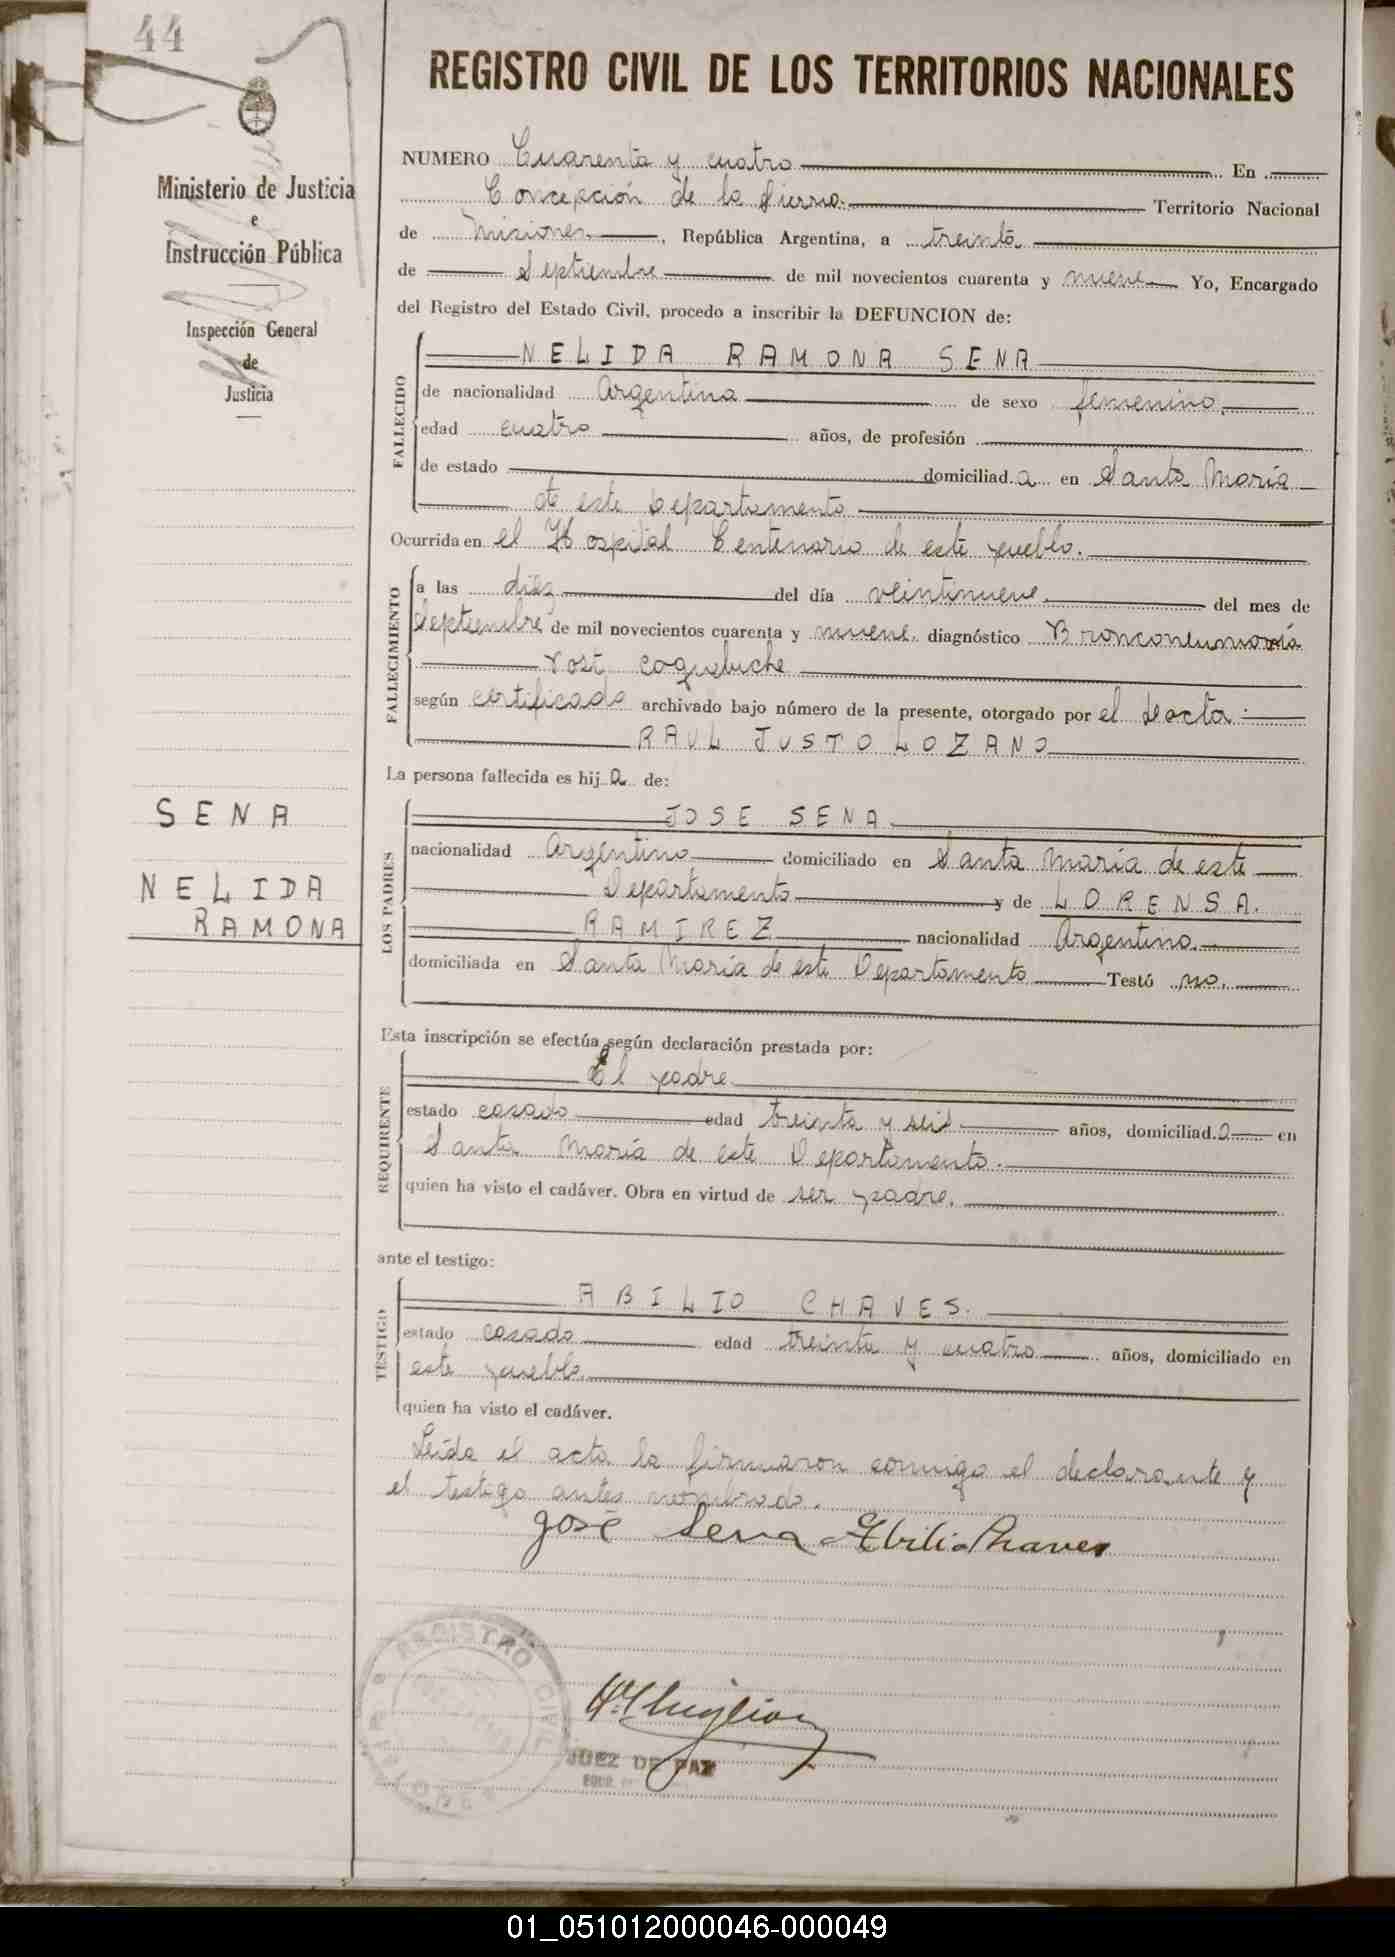 44
REGISTRO CIVIL DE LOS TERRITORIOS NACIONALES
Ministerio de Justicia
e
Instrucción Pública
Inspección General
de
Justicia
SENA
NELIDA
RAMONA
NUMERO Cuarenta y cuatro En
Concepción de la Sierra. Territorio Nacional
de Misiones, República Argentina, a treinta
de Septiembre de mil novecientos cuarenta y nueve Yo, Encargado
del Registro del Estado Civil, procedo a inscribir la DEFUNCION de:
FALLECIDO
NELIDA RAMONA SENA
de nacionalidad Argentina de sexo femenino,
edad cuatro años, de profesión
de estado domiciliad a en Santa María
de este Departamento
Ocurrida en el Hospital Centenario de este pueblo.
FALLECIMIENTO
a las diéz del día veintinueve del mes de
Septiembre de mil novecientos cuarenta y nueve. diagnóstico Bronconeumonía
Post coqueluche
según certificado archivado bajo número de la presente, otorgado por el Docto
RAUL JUSTO LOZANO
La persona fallecida es hij a de:
LOS PADRES
JOSE SENA
nacionalidad Argentino domiciliado en Santa María de este
Departamento y de LORENSA.
RAMIREZ nacionalidad Argentina.
domiciliada en Santa María de este Departamento Testó no.
Esta inscripción se efectúa según declaración prestada por:
REQUIRENTE
El padre
estado casado edad treinta y seis años, domiciliad o en
Santa María de este Departamento.
quien ha visto el cadáver. Obra en virtud de ser padre.
ante el testigo:
TESTIGO
ABILIO CHAVES.
estado casado edad treinta y cuatro años, domiciliado en
este pueblo
quien ha visto el cadáver.
Leída el acta la firmaron conmigo el declarante y
el testigo antes nombrado.
José Sena Abilio Chaves
REGISTRO CIVIL
JUEZ DE PAZ
01_051012000046-000049